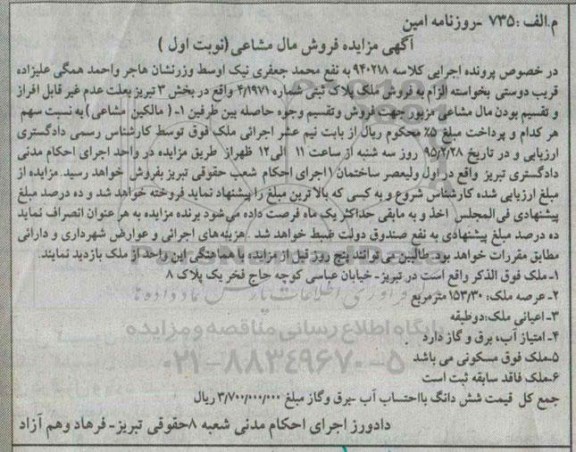 م.الف :۷۳۵ -روزنامه امین
آگهی مزایده فروش مال مشاعی(نوبت اول )
در خصوص پرونده اجرایی کلاسه ۹۴۰۲۱۸ به نفع محمد جعفری نیک اوسط وزرنشان هاجر واحمد همگی علیزاده
قریب دوستی بخواسته الزام به فروش ملک پلاک ثبتی شماره ۴/۱۹۷۱ واقع در بخش ۳ تبریز بعلت عدم غیر قابل افراز
و تقسیم بودن مال مشاعی مزبور جهت فروش وتقسیم وجوه حاصله بین طرفین ۱- ( مالکین مشاعی) به نسبت سهم
هر کدام و پرداخت مبلغ ۵٪ محکوم ریال از بابت نیم عشر اجرائی ملک فوق توسط کارشناس رسمی دادگستری
ارزیابی و در تاریخ ۹۵/۲/۲۸ روز سه شنبه از ساعت ۱۱ الی۱۲ ظهراز طریق مزایده در واحد اجرای احکام مدنی
دادگستری تبریز واقع در اول ولیعصر ساختمان ۱اجرای احکام شعب حقوقی تبریز بفروش خواهد رسید. مزایده از
مبلغ ارزیابی شده کارشناس شروع و به کیسی که بالاترین مبلغ را پیشنهاد نماید فروخته خواهد شد و ده درصد مبلغ
پیشنهادی فی‌المجلس اخذ و به مابقی حداکثر یک ماه فرصت داده می‌شود برنده مزایده به هر عنوان انصراف نماید
ده درصد مبلغ پیشنهادی به نفع صندوق دولت ضبط خواهد شد. هزینه‌های اجرائی و عوارض شهرداری و دارائی
مطابق مقررات خواهد بود. طالبین می‌توانند پنج روز قبل از مزایده با هماهنگی این واحد از ملک بازدید نمایند.
۱-ملک فوق الذکر واقع است در تبریز- خیابان عباسی کوچه حاج فخر یک پلاک ۸
۲-عرصه ملک: ۱۵۳/۳۰ مترمربع
۳-اعیانی ملک:دوطبقه
۴- امتیاز آب، برق و گاز دارد
۵-ملک فوق مسکونی می باشد
۶-ملک فاقد سابقه ثبت است
جمع کل قیمت شش دانگ بااحتساب آب -برق وگاز مبلغ ۳/۷۰۰/۰۰۰/۰۰۰ ریال
دادورز اجرای احکام مدنی شعبه ۸حقوقی تبریز- فرهاد وهم آزاد
پایگاه اطلاع رسانی مناقصه و مزایده
۰۲۱-۸۸۳۴۹۶۷۰-۵